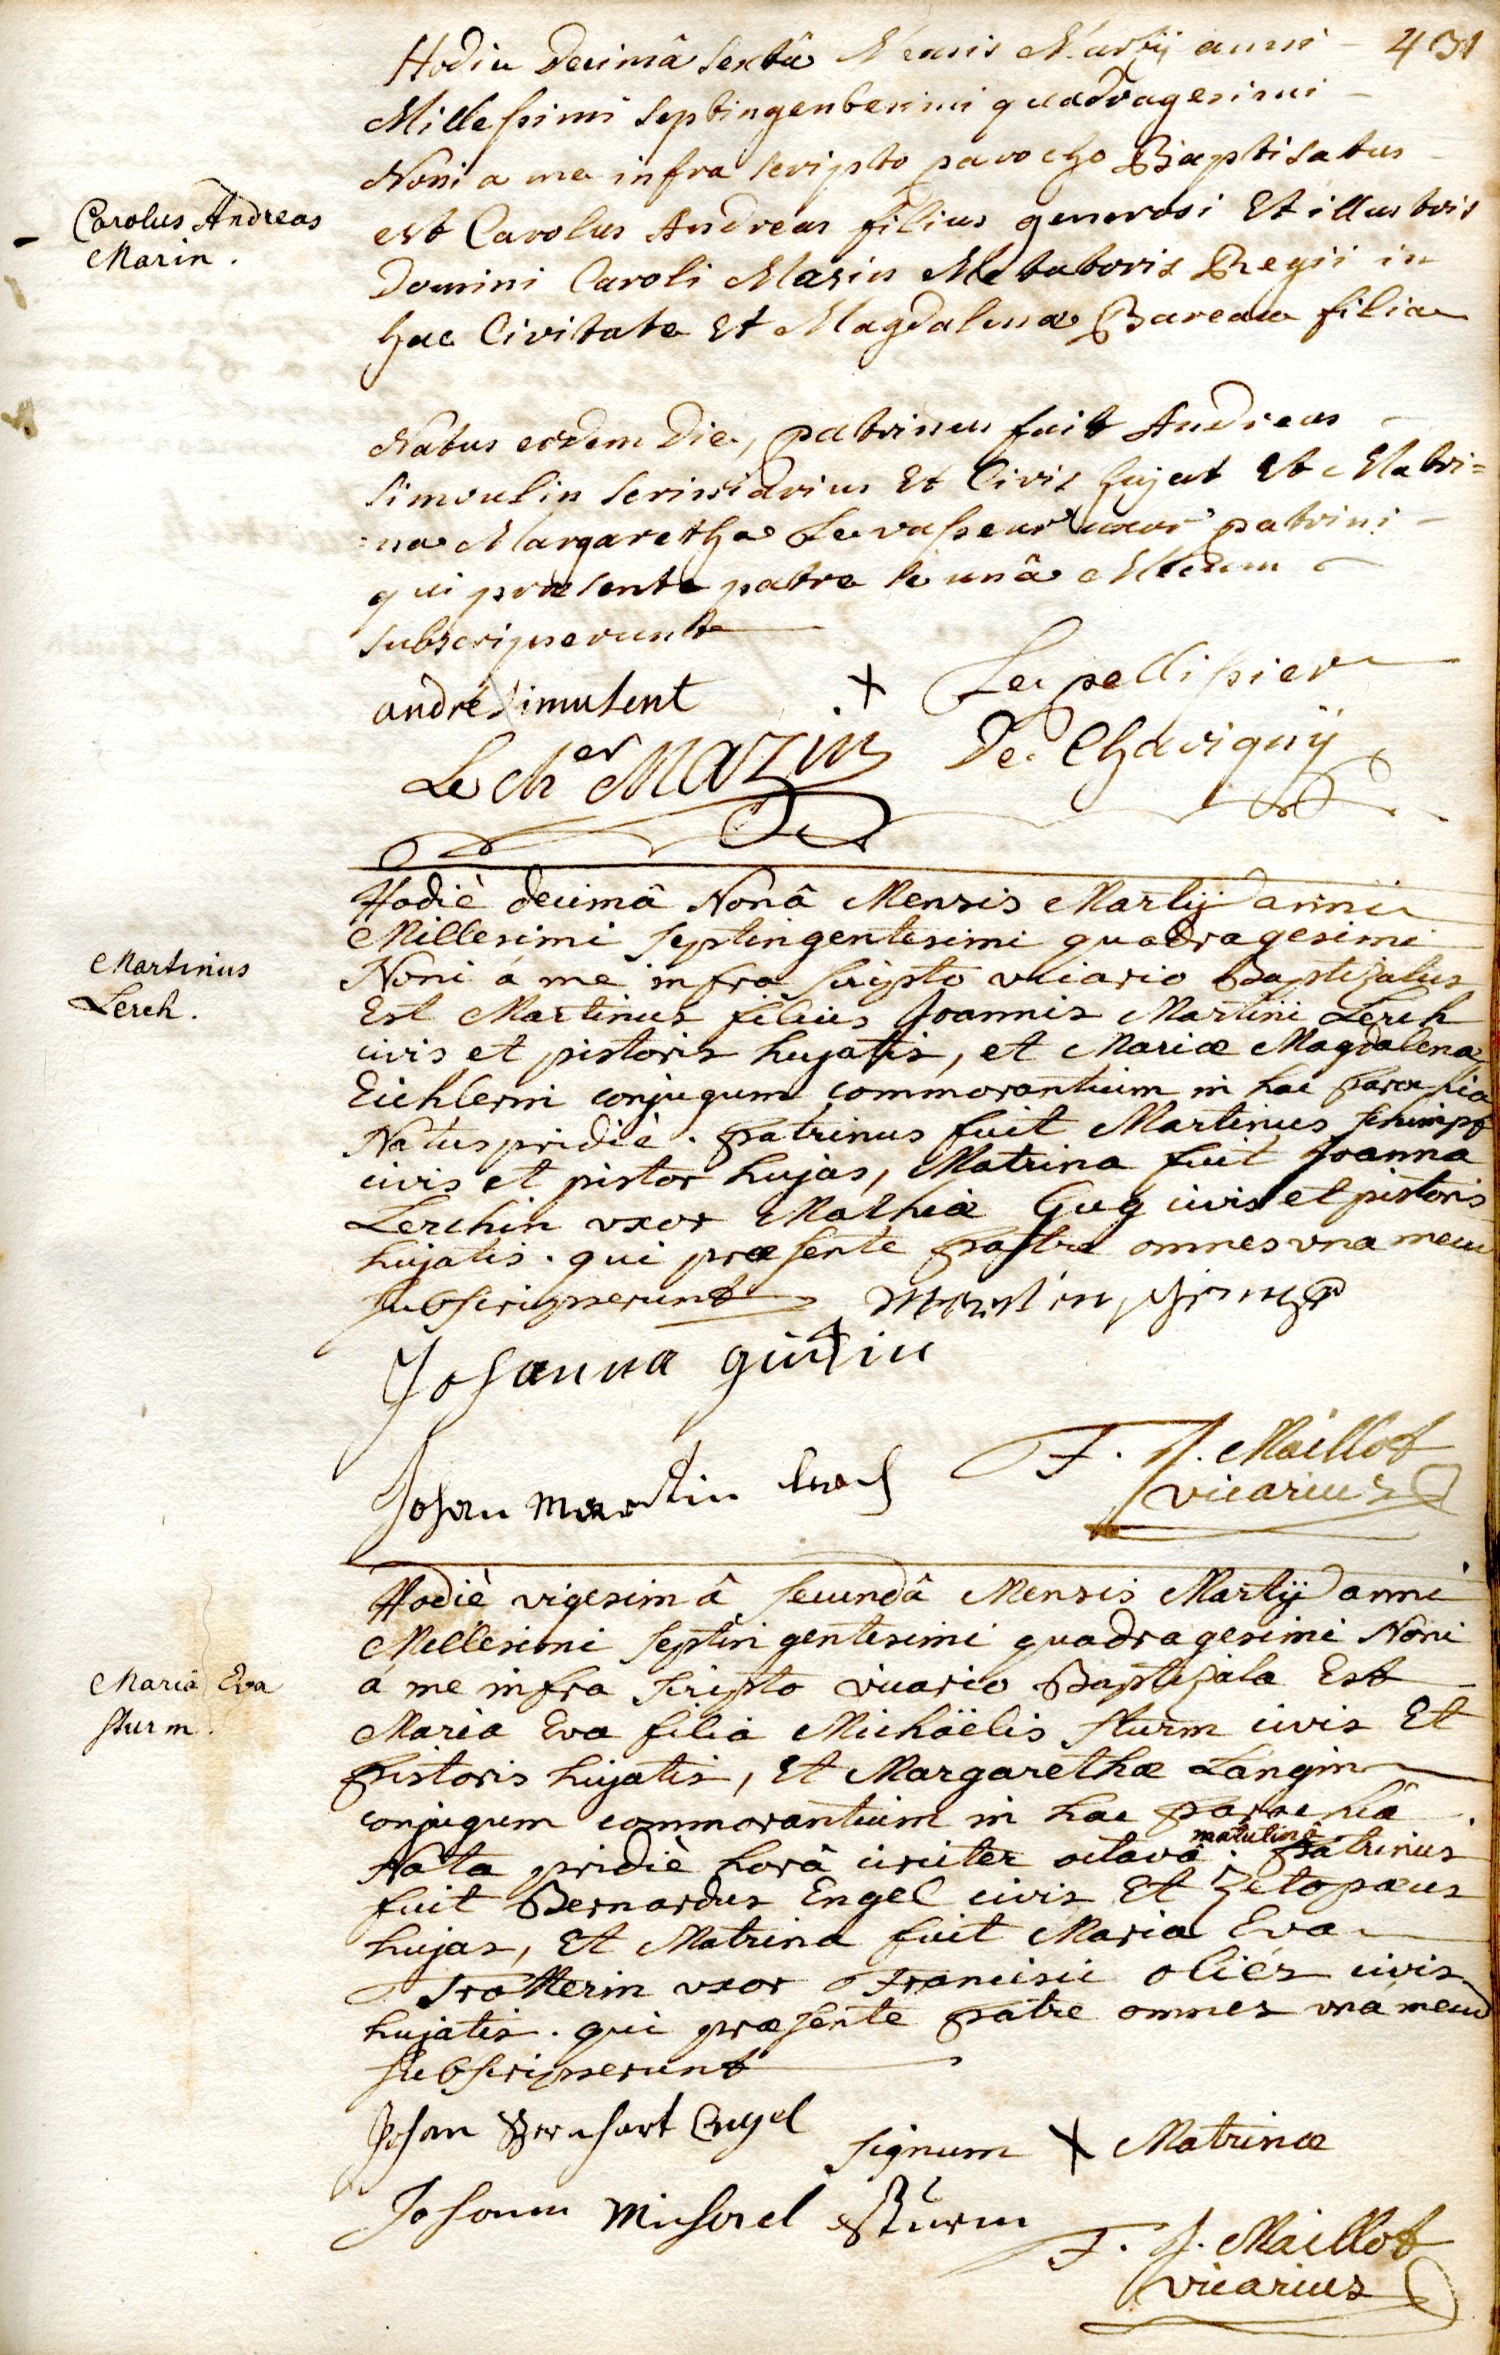 431
Hodie Decimâ sextâ Mensis Martij anni
Millessimi septingentesimi quadragesimi
Noni a me infra scripto parocho Baptisatus
Carolus Andreas
Marin.
est Carolus Andreas filius generosi Et illustris
Domini Caroli Mazin Metatoris Regii in
hac Civitate Et Magdalenae Bareau filia
Natus eodem Die, patrinus fuit Andreas
Simoulin Et Civis hujat Et Matri=
=na Margaretha Levasseur uxor patrini
qui praesente patre se unâ Mecum
subscripserunt
andré Simulent + Le pellissier
Le Cher Mazin De Chavignÿ
Hodiè decimâ Nonâ Mensis Martij anni
Millesimi septingentesimi quadragesimi
Martinus
Lerch.
Noni á me infra scripto vicario Baptizatus
Est Martinus filius Joannis Martini Lerch
civis et pistoris hujatis, et Mariæ Magdalenæ
Eichlerin conjugum commorantium in hac Parochia
Natus pridiè. Patrinus fuit Martinus schimpf
civis et pistor hujas, Matrina fuit Joanna
Lerchin vxor Mathiæ Gug civis et pistoris
hujatis. qui præsente Patre omnes vna mecum
subscripserunt Martin schimpf
Johanna
Johan Martin Lerch F. J. Maillot
vicarius
Hodiè vigesimâ secundâ Mensis Martij anni
Millesimi septingentesimi quadragesimi Noni
Maria Eva
sturm.
á me infra scripto vicario Baptizata Est
Maria Eva filia Michäelis sturm civis Et
Pistoris hujatis, Et Margarethæ Langin
conjugum commorantium in hac Parochiâ.
Nata pridiè horâ circiter octavâ matutinâ. Patrinus
fuit Bernardus Engel civis Et Zetopæus
hujas, Et Matrina fuit Maria Eva
Trotterin vxor Francisci oliér civis
hujatis. qui præsente Patre omnes vná mecum
subscripserunt
Johan Bernhart Engel signum X Matrinæ
Johann Michael Sturm
F. J. Maillot
vicarius